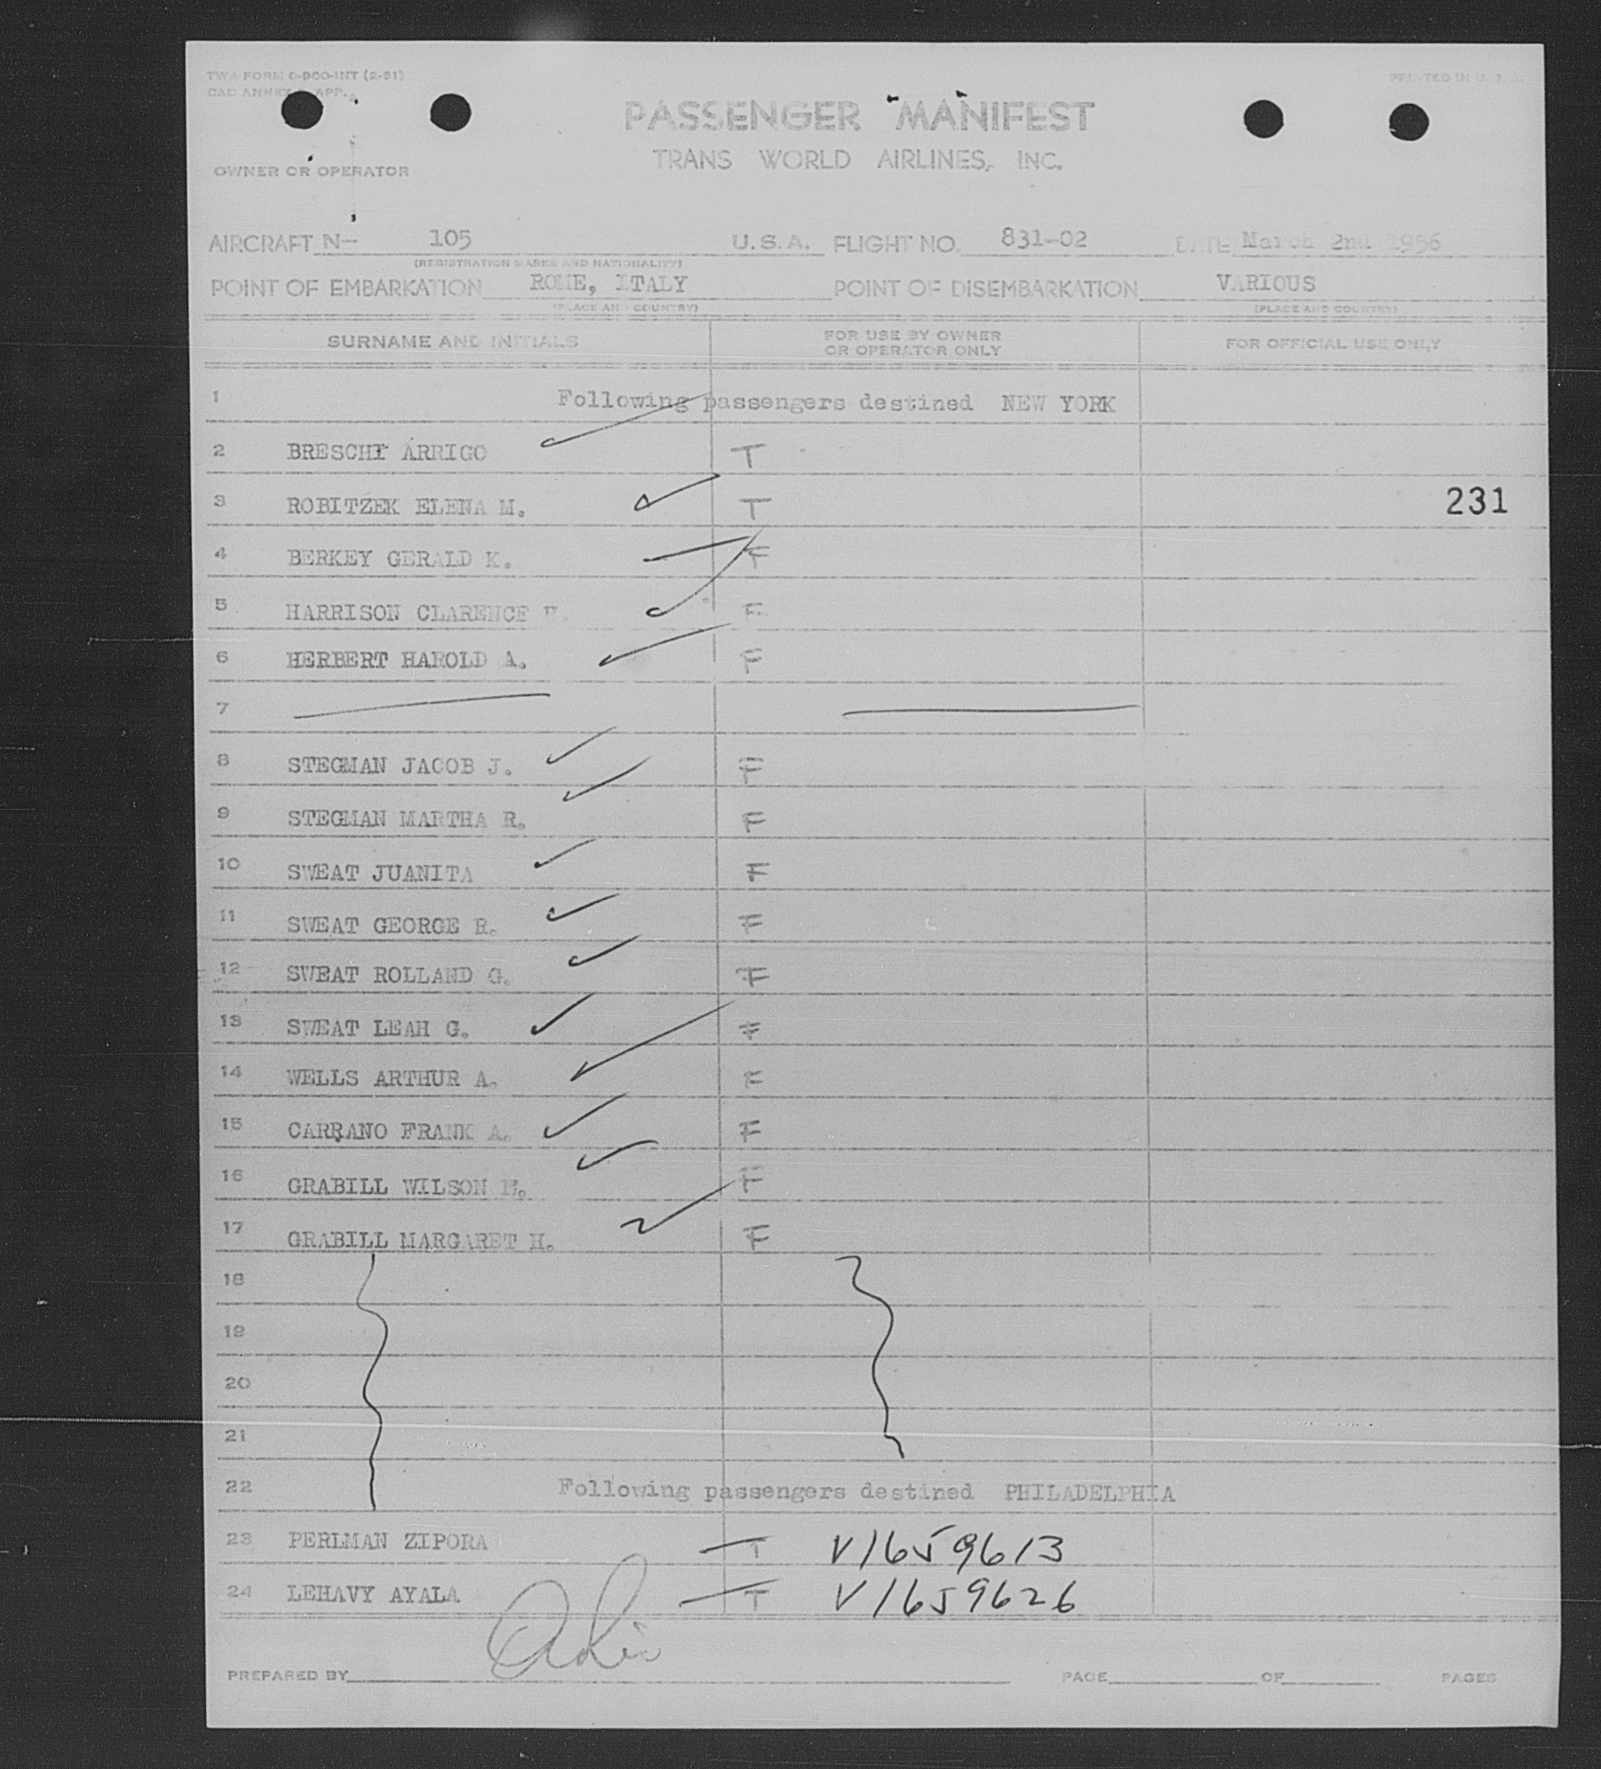 TWA FORM O-900-INT (2-51)
PRINTED IN U. S. A.
CAO ANNEX 9 APP.
PASSENGER MANIFEST
TRANS WORLD AIRLINES, INC.
OWNER OR OPERATOR
AIRCRAFT N- 105 U.S.A. FLIGHT NO. 831-02 DATE March 2nd 1956
(REGISTRATION MARKS AND NATIONALITY)
POINT OF EMBARKATION ROME, ITALY POINT OF DISEMBARKATION VARIOUS
(PLACE AND COUNTRY) (PLACE AND COUNTRY)
SURNAME AND INITIALS FOR USE BY OWNER OR OPERATOR ONLY FOR OFFICIAL USE ONLY
1 Following passengers destined NEW YORK
2 BRESCHI ARRIGO T
3 ROBITZEK ELENA M. T 231
4 BERKEY GERALD K. F
5 HARRISON CLARENCE F
6 HERBERT HAROLD A. F
7
8 STEGMAN JACOB J. F
9 STEGMAN MARTHA R. F
10 SWEAT JUANITA F
11 SWEAT GEORGE R. F
12 SWEAT ROLLAND G. F
13 SWEAT LEAH G. F
14 WELLS ARTHUR A. F
15 CARRANO FRANK A. F
16 GRABILL WILSON F
17 GRABILL MARGARET H. F
18
19
20
21
22 Following passengers destined PHILADELPHIA
23 PERLMAN ZIPORA T V1659613
24 LEHAVY AYALA T V1659626
PREPARED BY PAGE OF PAGES